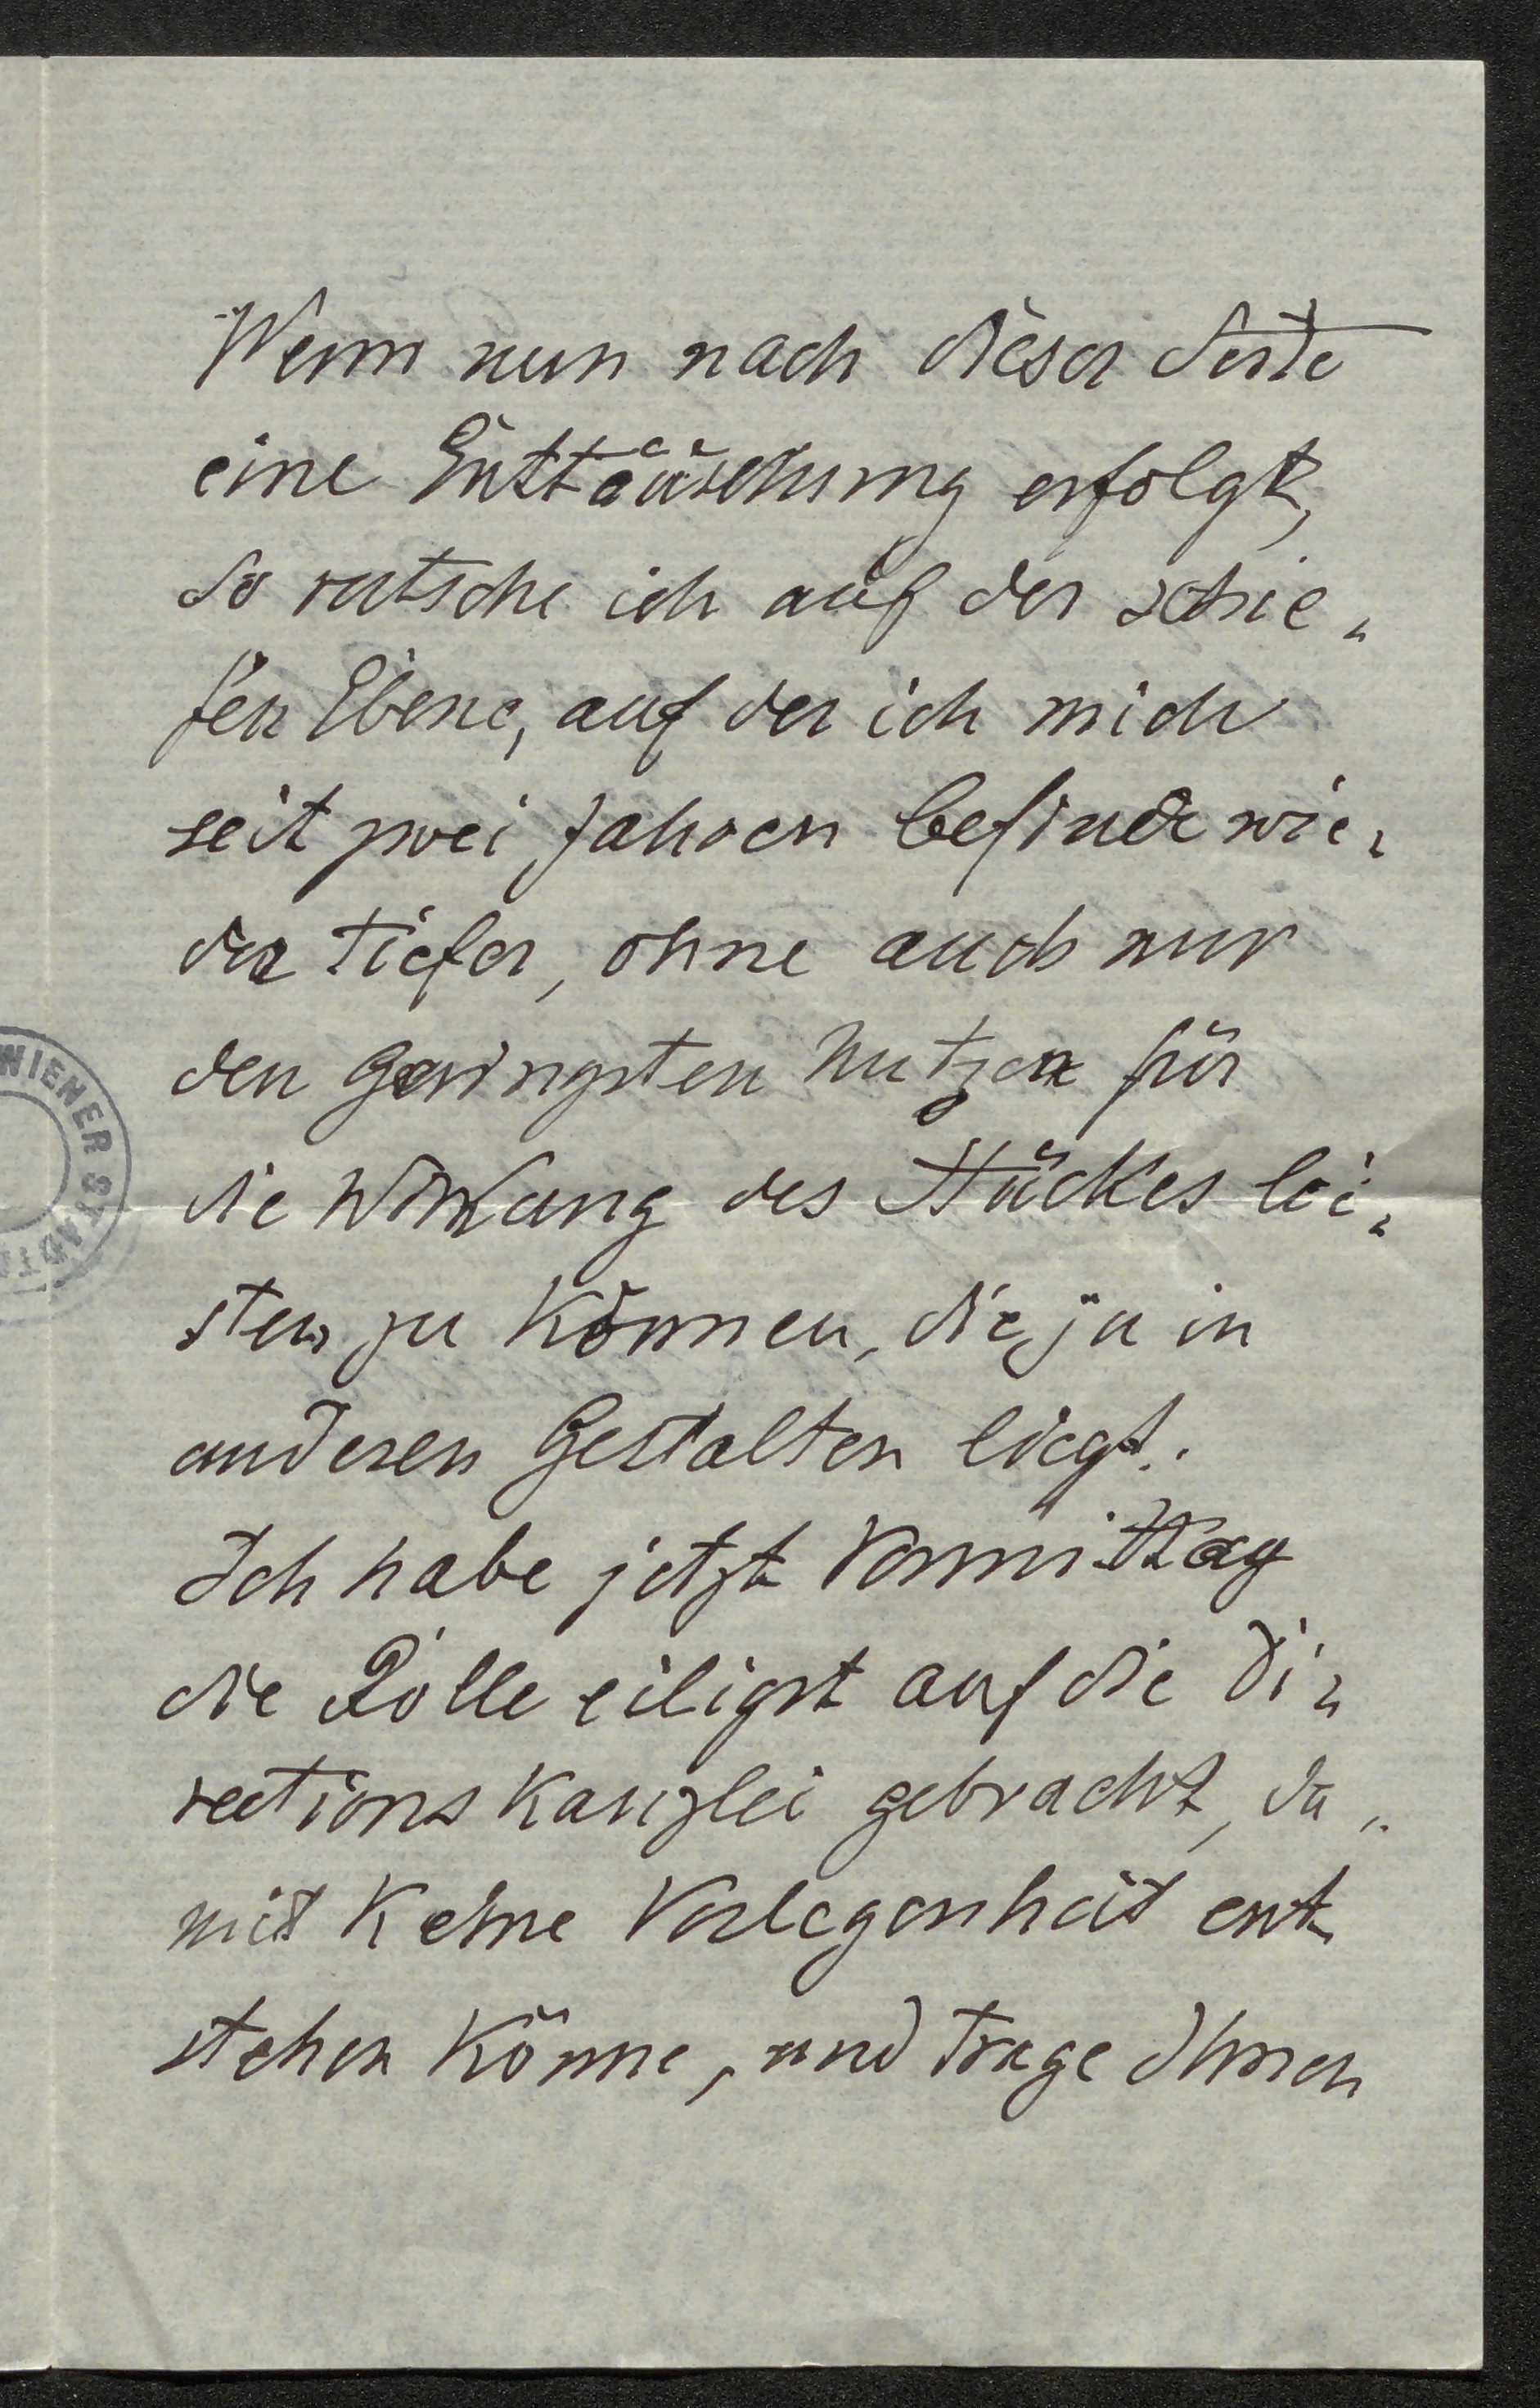 Wenn nun nach dieser Seite
eine Enttäuschung erfolgt,
so rutsche ich auf der schie„
fen Ebene, auf der ich mich
seit zwei Jahren befinde wie„
der tiefer, ohne auch nur
den geringsten Nutzen für
die Wirkung des Stückes lei„
sten zu können, die ja in
anderen Gestalten liegt.
Ich habe jetzt Vormittag
die Rolle eiligst auf die Di„
rections Kanzlei gebracht, da„
mit keine Verlegenheit ent
stehen könne, und trage Ihnen
WIENER STADT